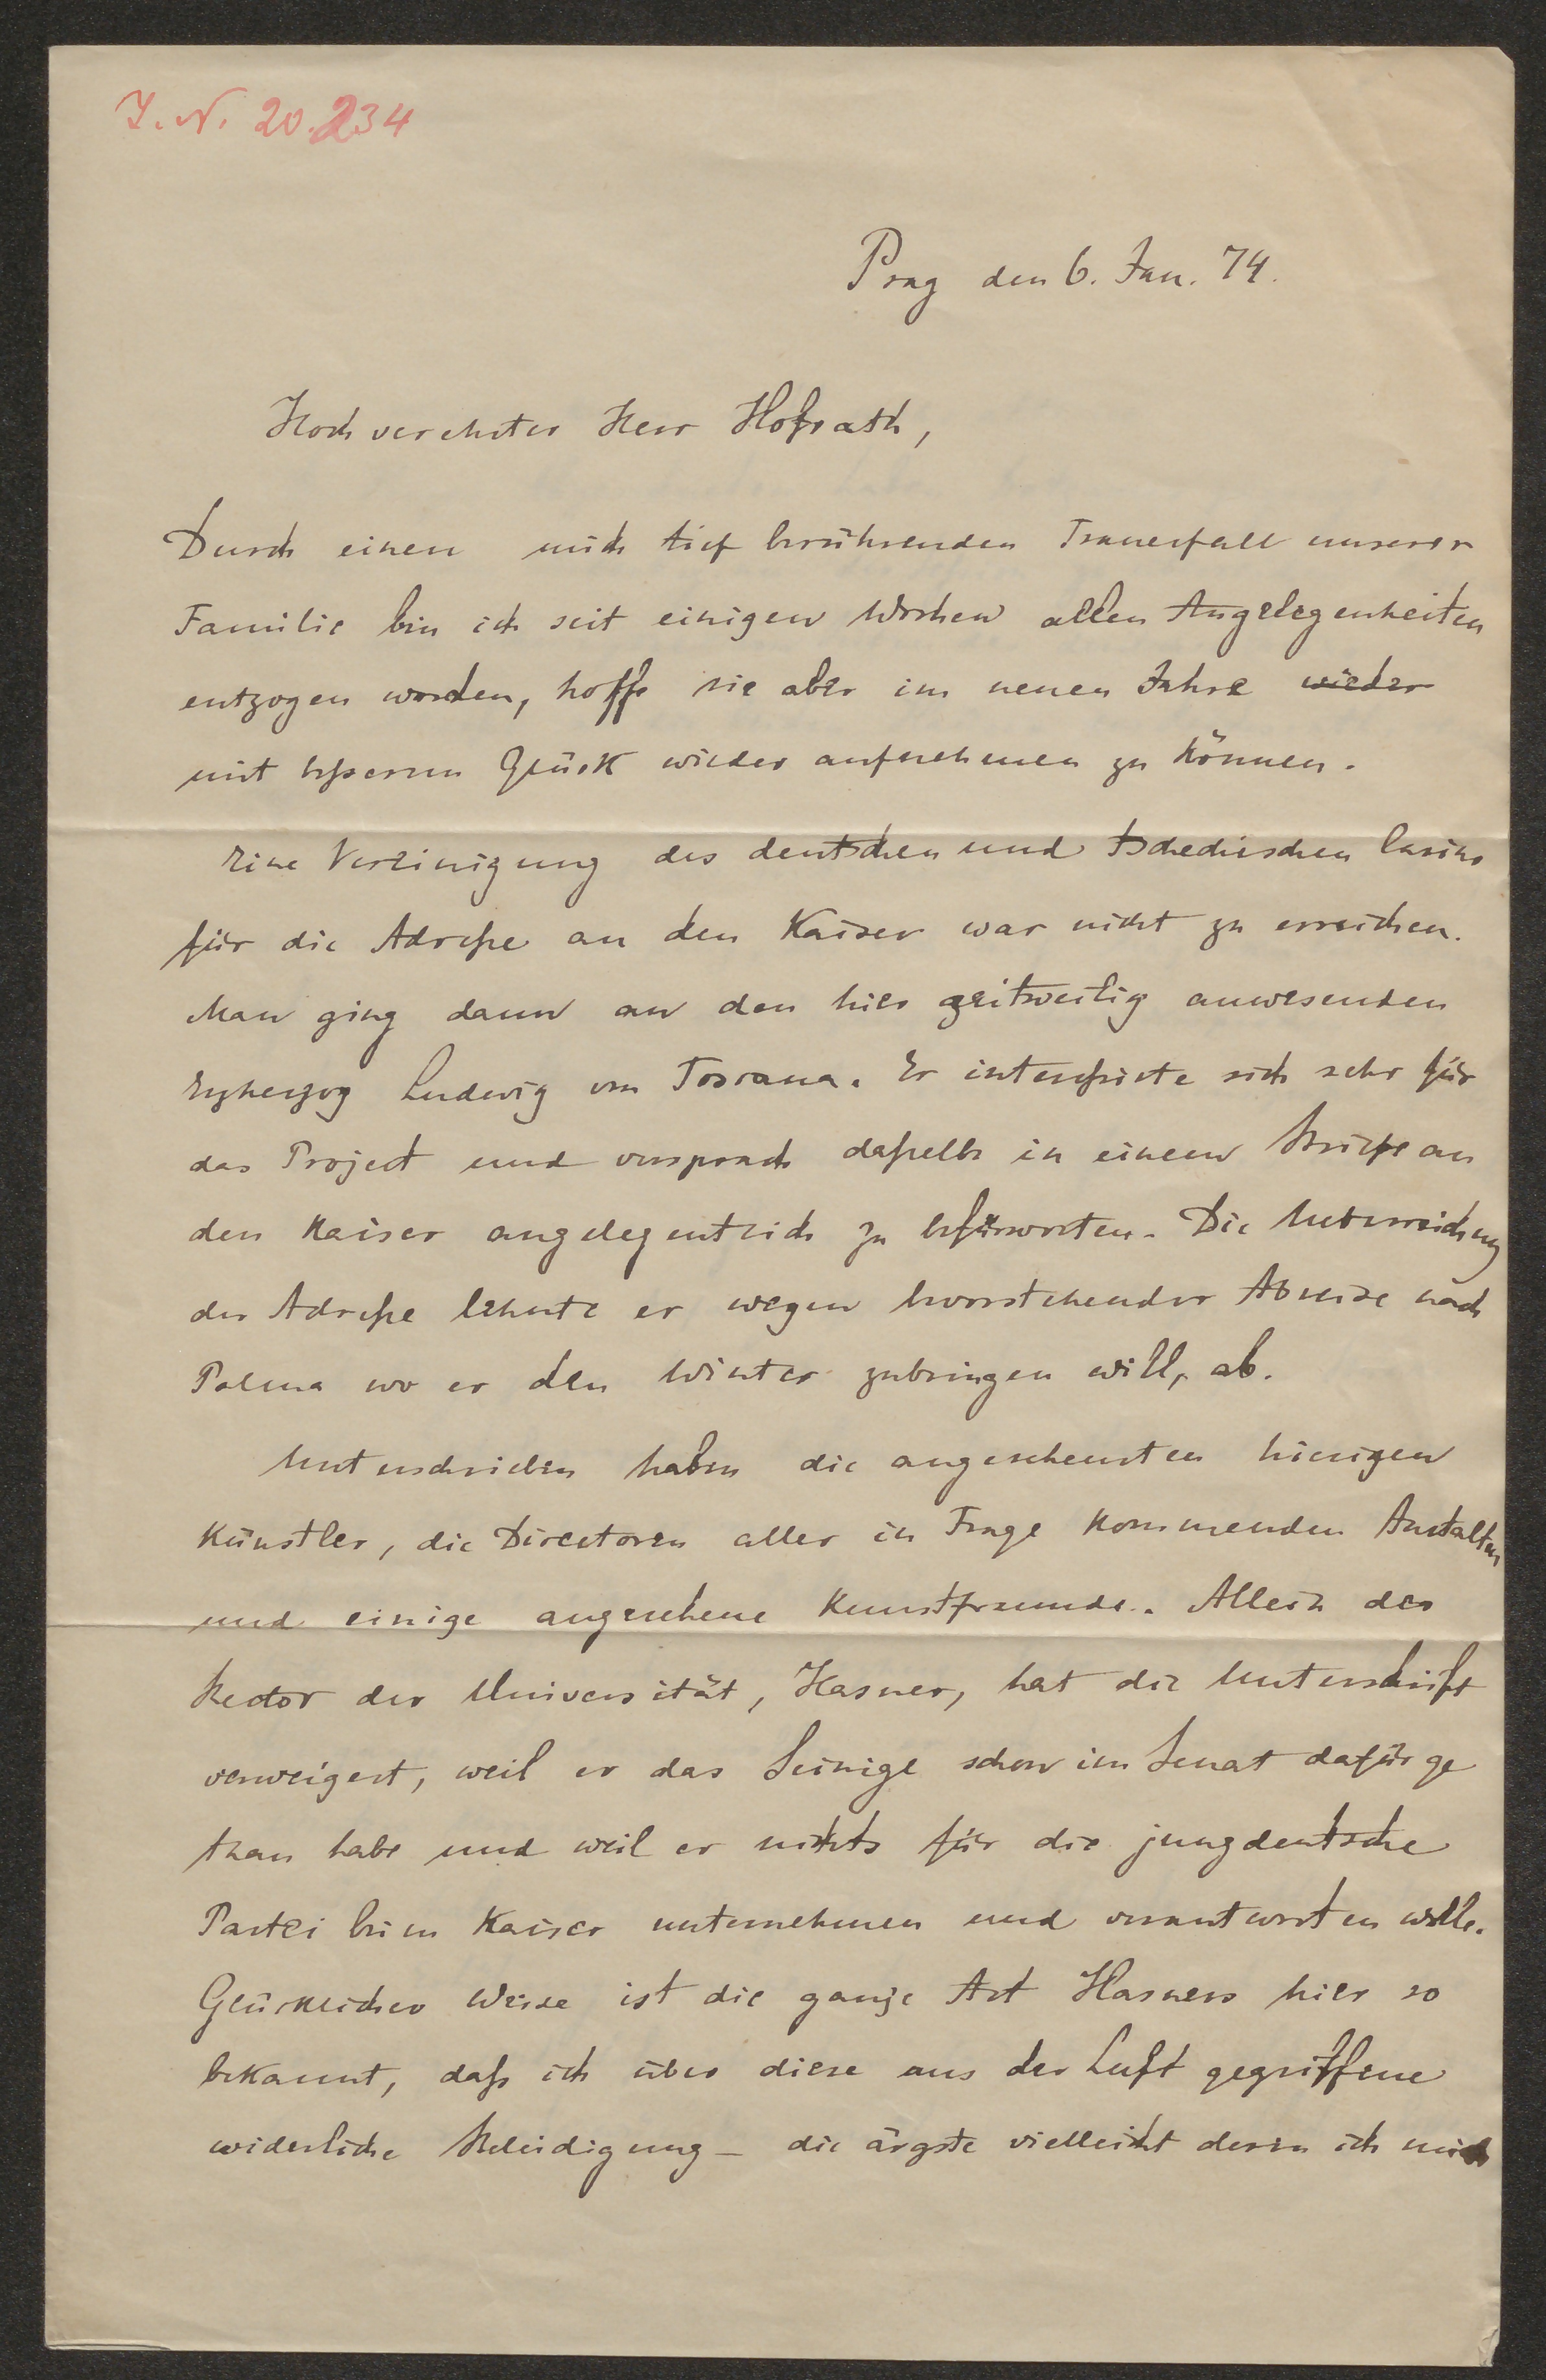 I. N. 20.234
Prag den 6. Jan. 74.
Hochverehrter Herr Hofrath,
Durch einen mich tief berührenden Trauerfall unserer
Familie bin ich seit einigen Wochen allen Angelegenheiten
entzogen worden, hoffe sie aber im neuen Jahre wieder
mit beßerem Glück wieder aufnehmen zu können.
Eine Vereinigung des deutschen und tschechischen Casino
für die Adreße an den Kaiser war nicht zu erreichen.
Man ging dann an den hier zeitweilig anwesenden
Erzherzog Ludwig von Toscana. Er intereßirte sich sehr für
das Project und versprach daßelbe in einem Briefe an
den Kaiser angelegentlich zu befürworten. Die Ueberreichung
der Adreße lehnte er wegen bevorstehender Abreise nach
Palma wo er den Winter zubringen will, ab.
Unterschrieben haben die angesehensten hiesigen
Künstler, die Directoren aller in Frage kommenden Anstalten
und einige angesehene Kunstfreunde. Allein der
Rector der Universität, Hasner, hat die Unterschrift
verweigert, weil er das Seinige schon im Senat dafür ge
than habe und weil er nichts für die jungdeutsche
Partei beim Kaiser unternehmen und verantworten wolle.
Glücklicher Weise ist die ganze Art Hasners hier so
bekannt, daß ich über diese aus der Luft gegriffene
widerliche Beleidigung – die ärgste vielleicht deren ich mich